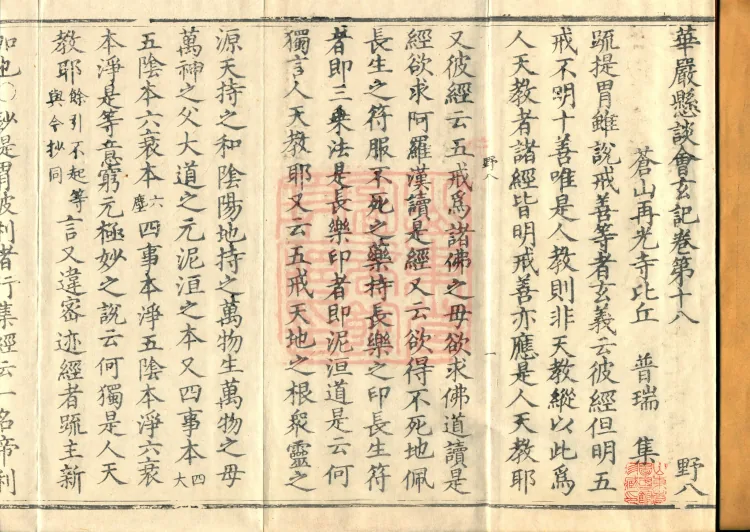 華嚴懸談會玄記卷第十八 野八
蒼山再光寺比丘 普瑞 集
䟽提胃雖說戒善等者玄義云彼經但明五
戒不明十善唯是人教則非天教縱以此爲
人天教者諸經皆明戒善亦應是人天教耶
野八 一
又彼經云五戒爲諸佛之母欲求佛道讀是
經欲求阿羅漢讀是經又云欲得不死地佩
長生之符服不死之藥持長樂之印長生符
者即三乘法是長樂印者即泥洹道是云何
獨言人天教耶又云五戒天地之根衆靈之
源天持之和陰陽地持之萬物生萬物之母
萬神之父大道之元泥洹之本又四事本四大
五陰本六衰本六塵四事本淨五陰本淨六衰
本淨是等意窮元極妙之說云何獨是人天
教耶餘引不起等與今抄同言又違密迹經者䟽主新
如也〇鈔提胃波利者行集經云一名帝利